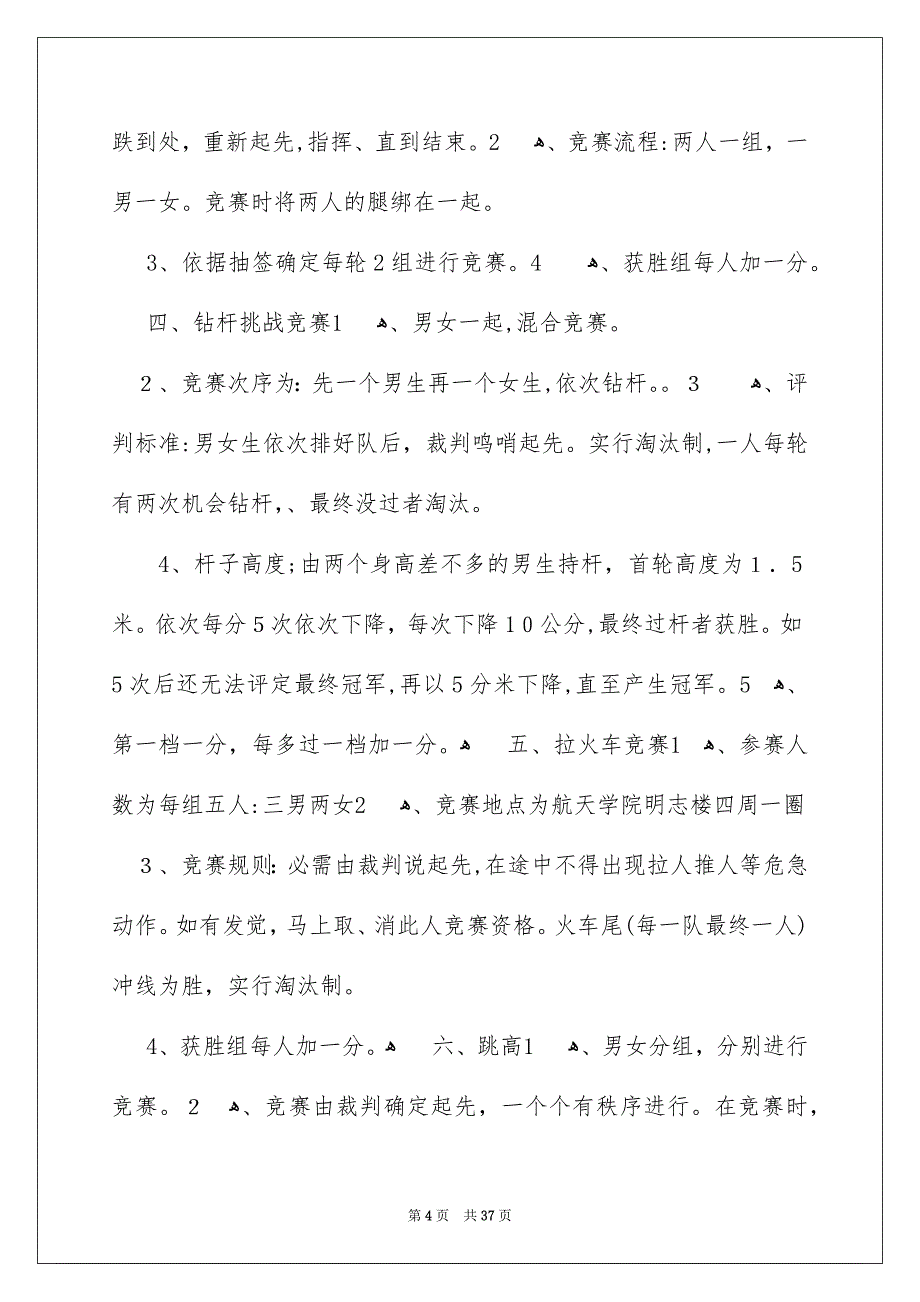 跌到处，重新起先,指挥、直到结束。2 ﻫ、竞赛流程:两人一组，一
男一女。竞赛时将两人的腿绑在一起。
3、依据抽签确定每轮2组进行竞赛。4 ﻫ、获胜组每人加一分。
四、钻杆挑战竞赛1 ﻫ、男女一起,混合竞赛。
２、竞赛次序为：先一个男生再一个女生,依次钻杆。。３ ﻫ、评
判标准:男女生依次排好队后，裁判鸣哨起先。实行淘汰制,一人每轮
有两次机会钻杆,、最终没过者淘汰。
4、杆子高度;由两个身高差不多的男生持杆，首轮高度为１．５
米。依次每分５次依次下降，每次下降１０公分,最终过杆者获胜。如
5次后还无法评定最终冠军,再以５分米下降,直至产生冠军。5 ﻫ、
第一档一分，每多过一档加一分。ﻫ 五、拉火车竞赛1 ﻫ、参赛人
数为每组五人:三男两女2 ﻫ、竞赛地点为航天学院明志楼四周一圈
３、竞赛规则：必需由裁判说起先,在途中不得出现拉人推人等危急
动作。如有发觉，马上取、消此人竞赛资格。火车尾(每一队最终一人)
冲线为胜，实行淘汰制。
4、获胜组每人加一分。ﻫ 六、跳高1 ﻫ、男女分组，分别进行
竞赛。２ ﻫ、竞赛由裁判确定起先，一个个有秩序进行。在竞赛时，
第 4 页 共 37 页